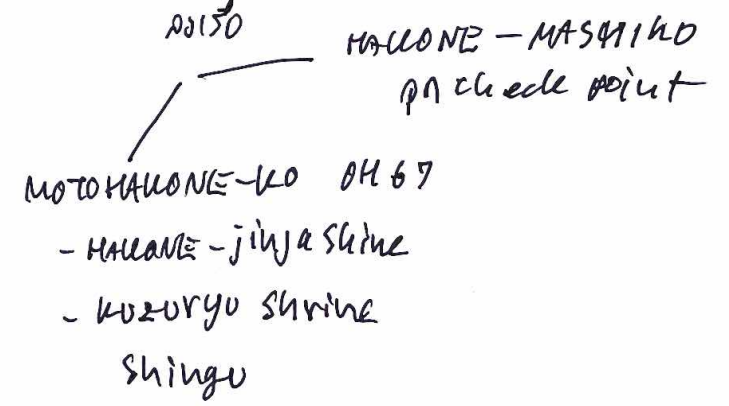 HAKONE - MASHIKO
check point
MOTOHAKONE-KO OH67
- HAKONE-jinja shine
- kuzuryu shrine
shingu